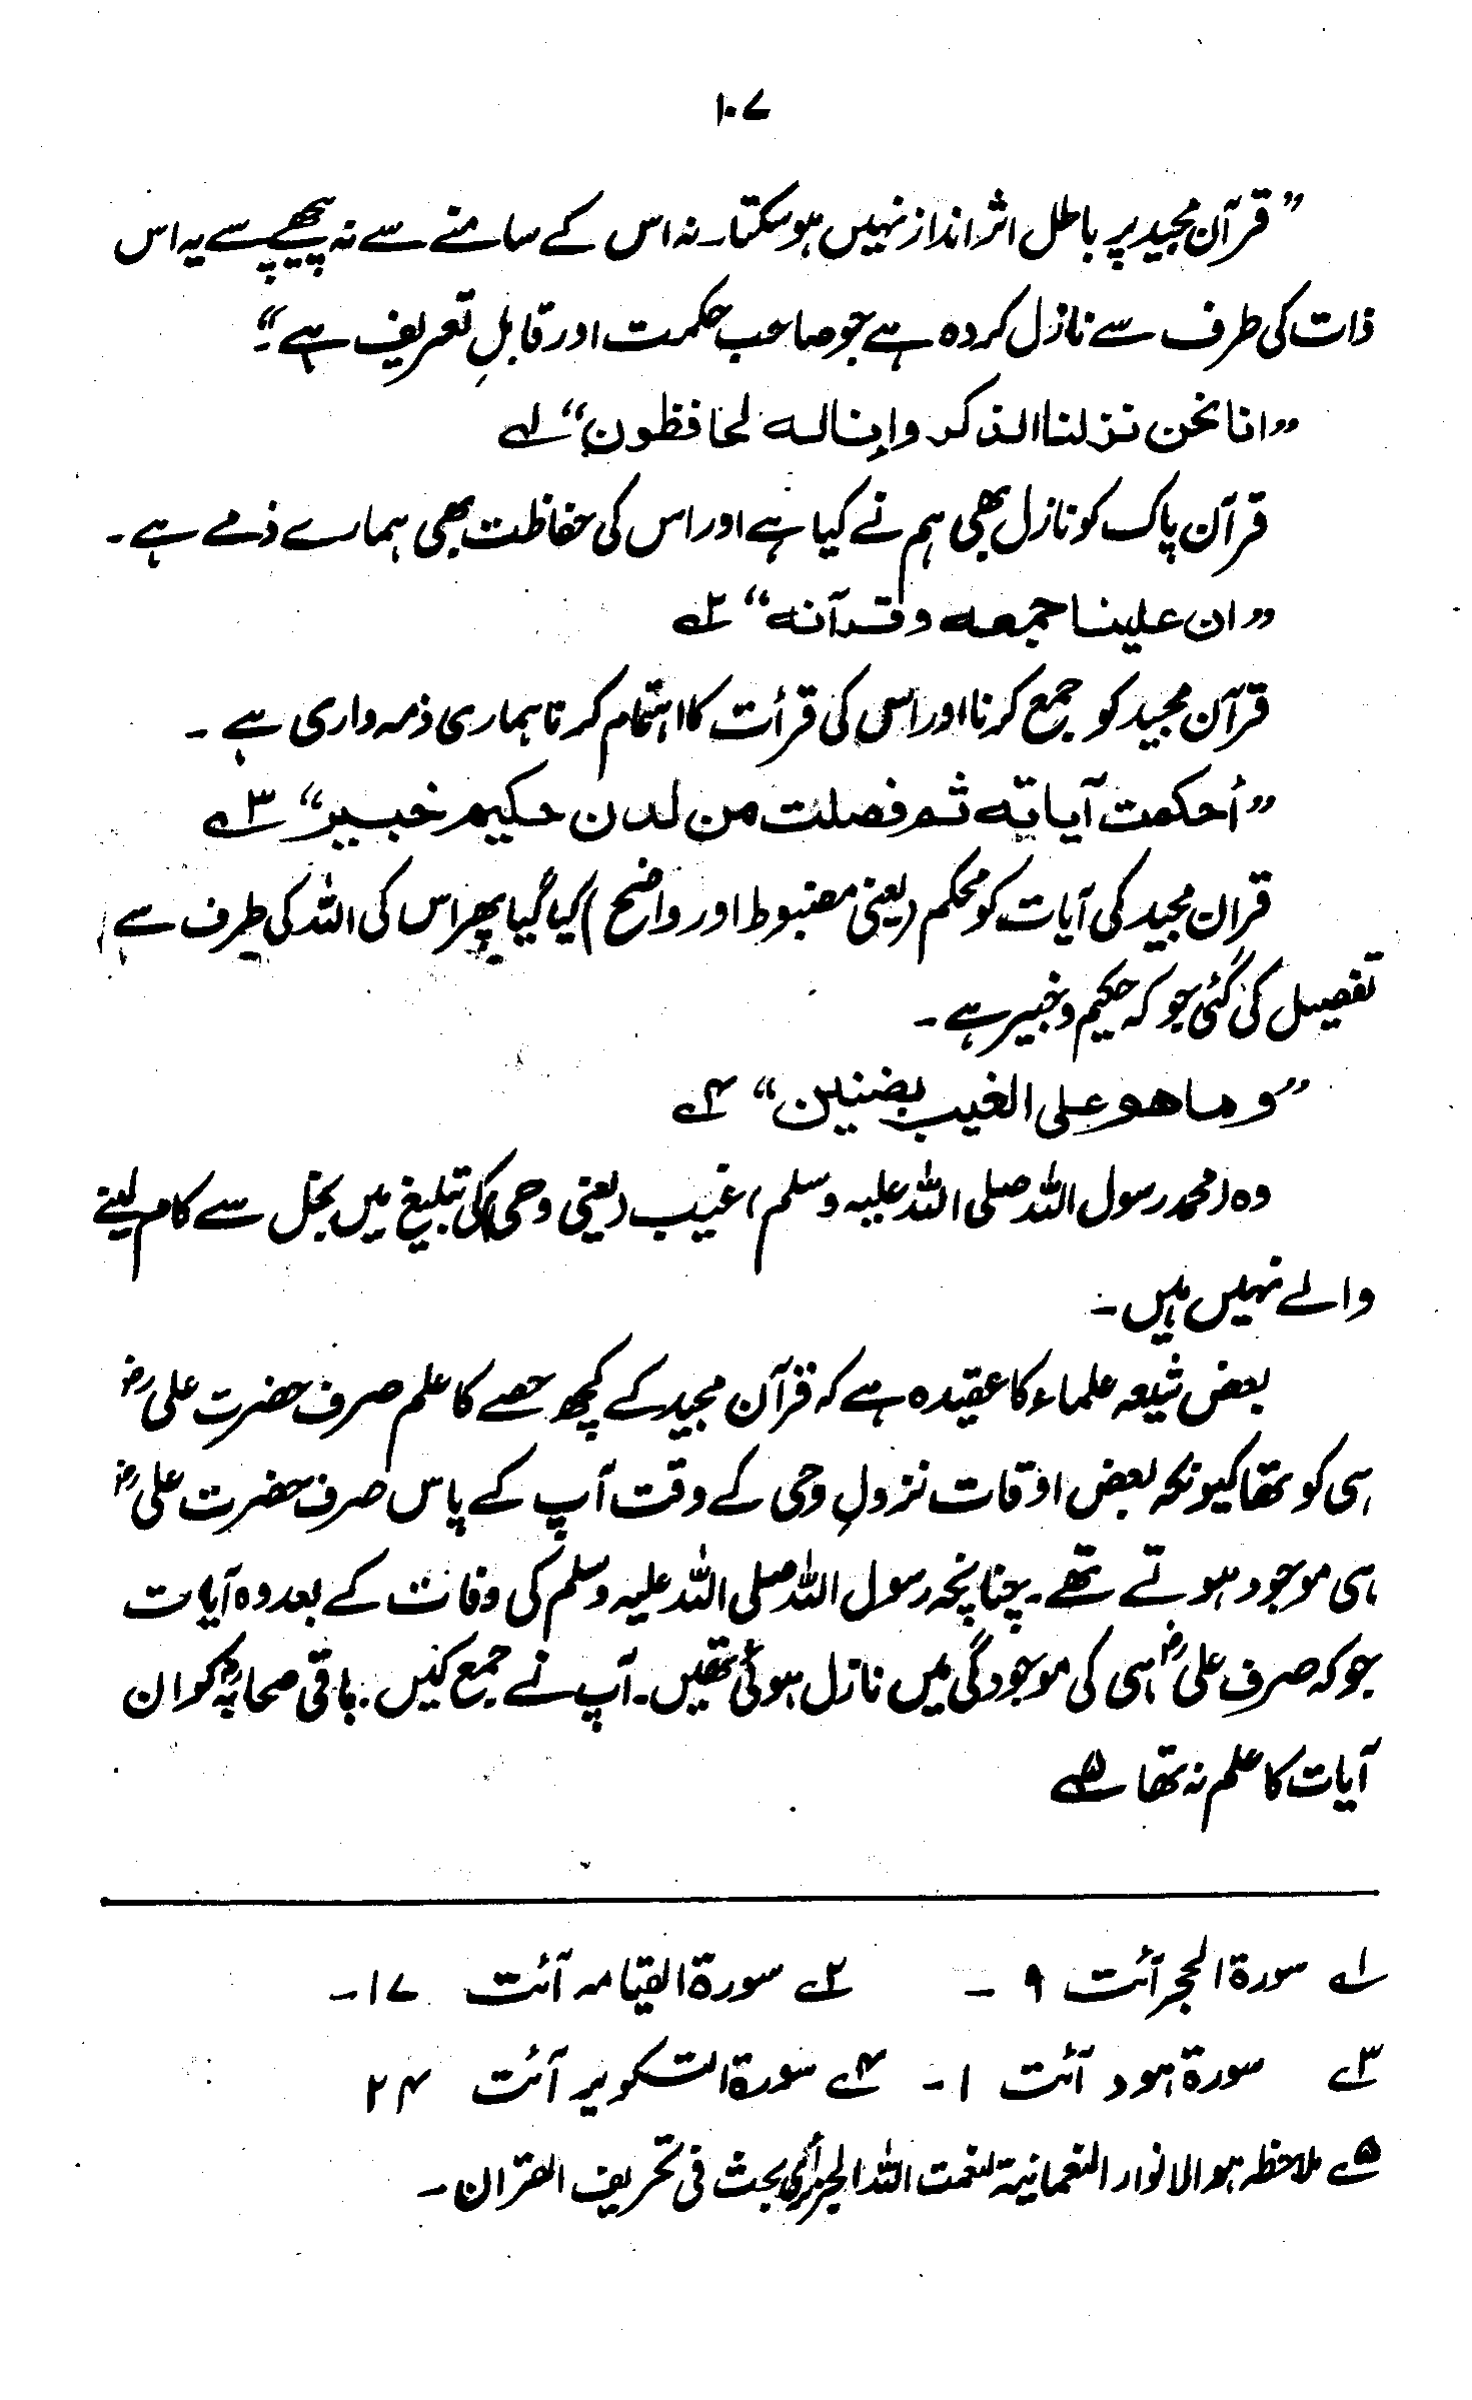 ۱۰۷
”قرآن مجید پر باطل اثر انداز نہیں ہو سکتا۔ نہ اس کے سامنے سے نہ پیچھے سے یہ اس
ذات کی طرف سے نازل کردہ ہے جو صاحب حکمت اور قابلِ تعریف ہے“۔
”انا نحن نزلنا الذکر وإنا له لحافظون“ ۱ے
قرآن پاک کو نازل بھی ہم نے کیا ہے اور اس کی حفاظت بھی ہمارے ذمے ہے۔
”ان علینا جمعه وقرآنه“ ۲ے
قرآن مجید کو جمع کرنا اور اس کی قرأت کا اہتمام کرنا ہماری ذمہ داری ہے۔
”أحکمت آیاته ثم فصلت من لدن حکیم خبیر“ ۳ے
قران مجید کی آیات کو محکم (یعنی مضبوط اور واضح) کیا گیا پھر اس کی اللہ کی طرف سے
تفصیل کی گئی جو کہ حکیم و خبیر ہے۔
”وما هو علی الغیب بضنین“ ۴ے
وہ (محمد رسول اللہ صلی اللہ علیہ وسلم) غیب (یعنی وحی) کی تبلیغ میں بخل سے کام لینے
والے نہیں ہیں۔
بعض شیعہ علماء کا عقیدہ ہے کہ قرآن مجید کے کچھ حصے کا علم صرف حضرت علیؓ
ہی کو تھا کیونکہ بعض اوقات نزولِ وحی کے وقت آپ کے پاس صرف حضرت علیؓ
ہی موجود ہوتے تھے۔ چنانچہ رسول اللہ صلی اللہ علیہ وسلم کی وفات کے بعد وہ آیات
جو کہ صرف علیؓ ہی کی موجودگی میں نازل ہوئی تھیں۔ آپ نے جمع کیں۔ باقی صحابہؓ کو ان
آیات کا علم نہ تھا ۵ے
۱ے سورۃ الحجر آئت ۹ ۔ ۲ے سورۃ القیامہ آئت ۱۷۔
۳ے سورۃ ہود آئت ۱۔ ۴ے سورۃ التکویر آئت ۲۴
۵ے ملاحظہ ہو الانوار النعمانیۃ لنعمت اللہ الجزائری بحث فی تحریف القران۔